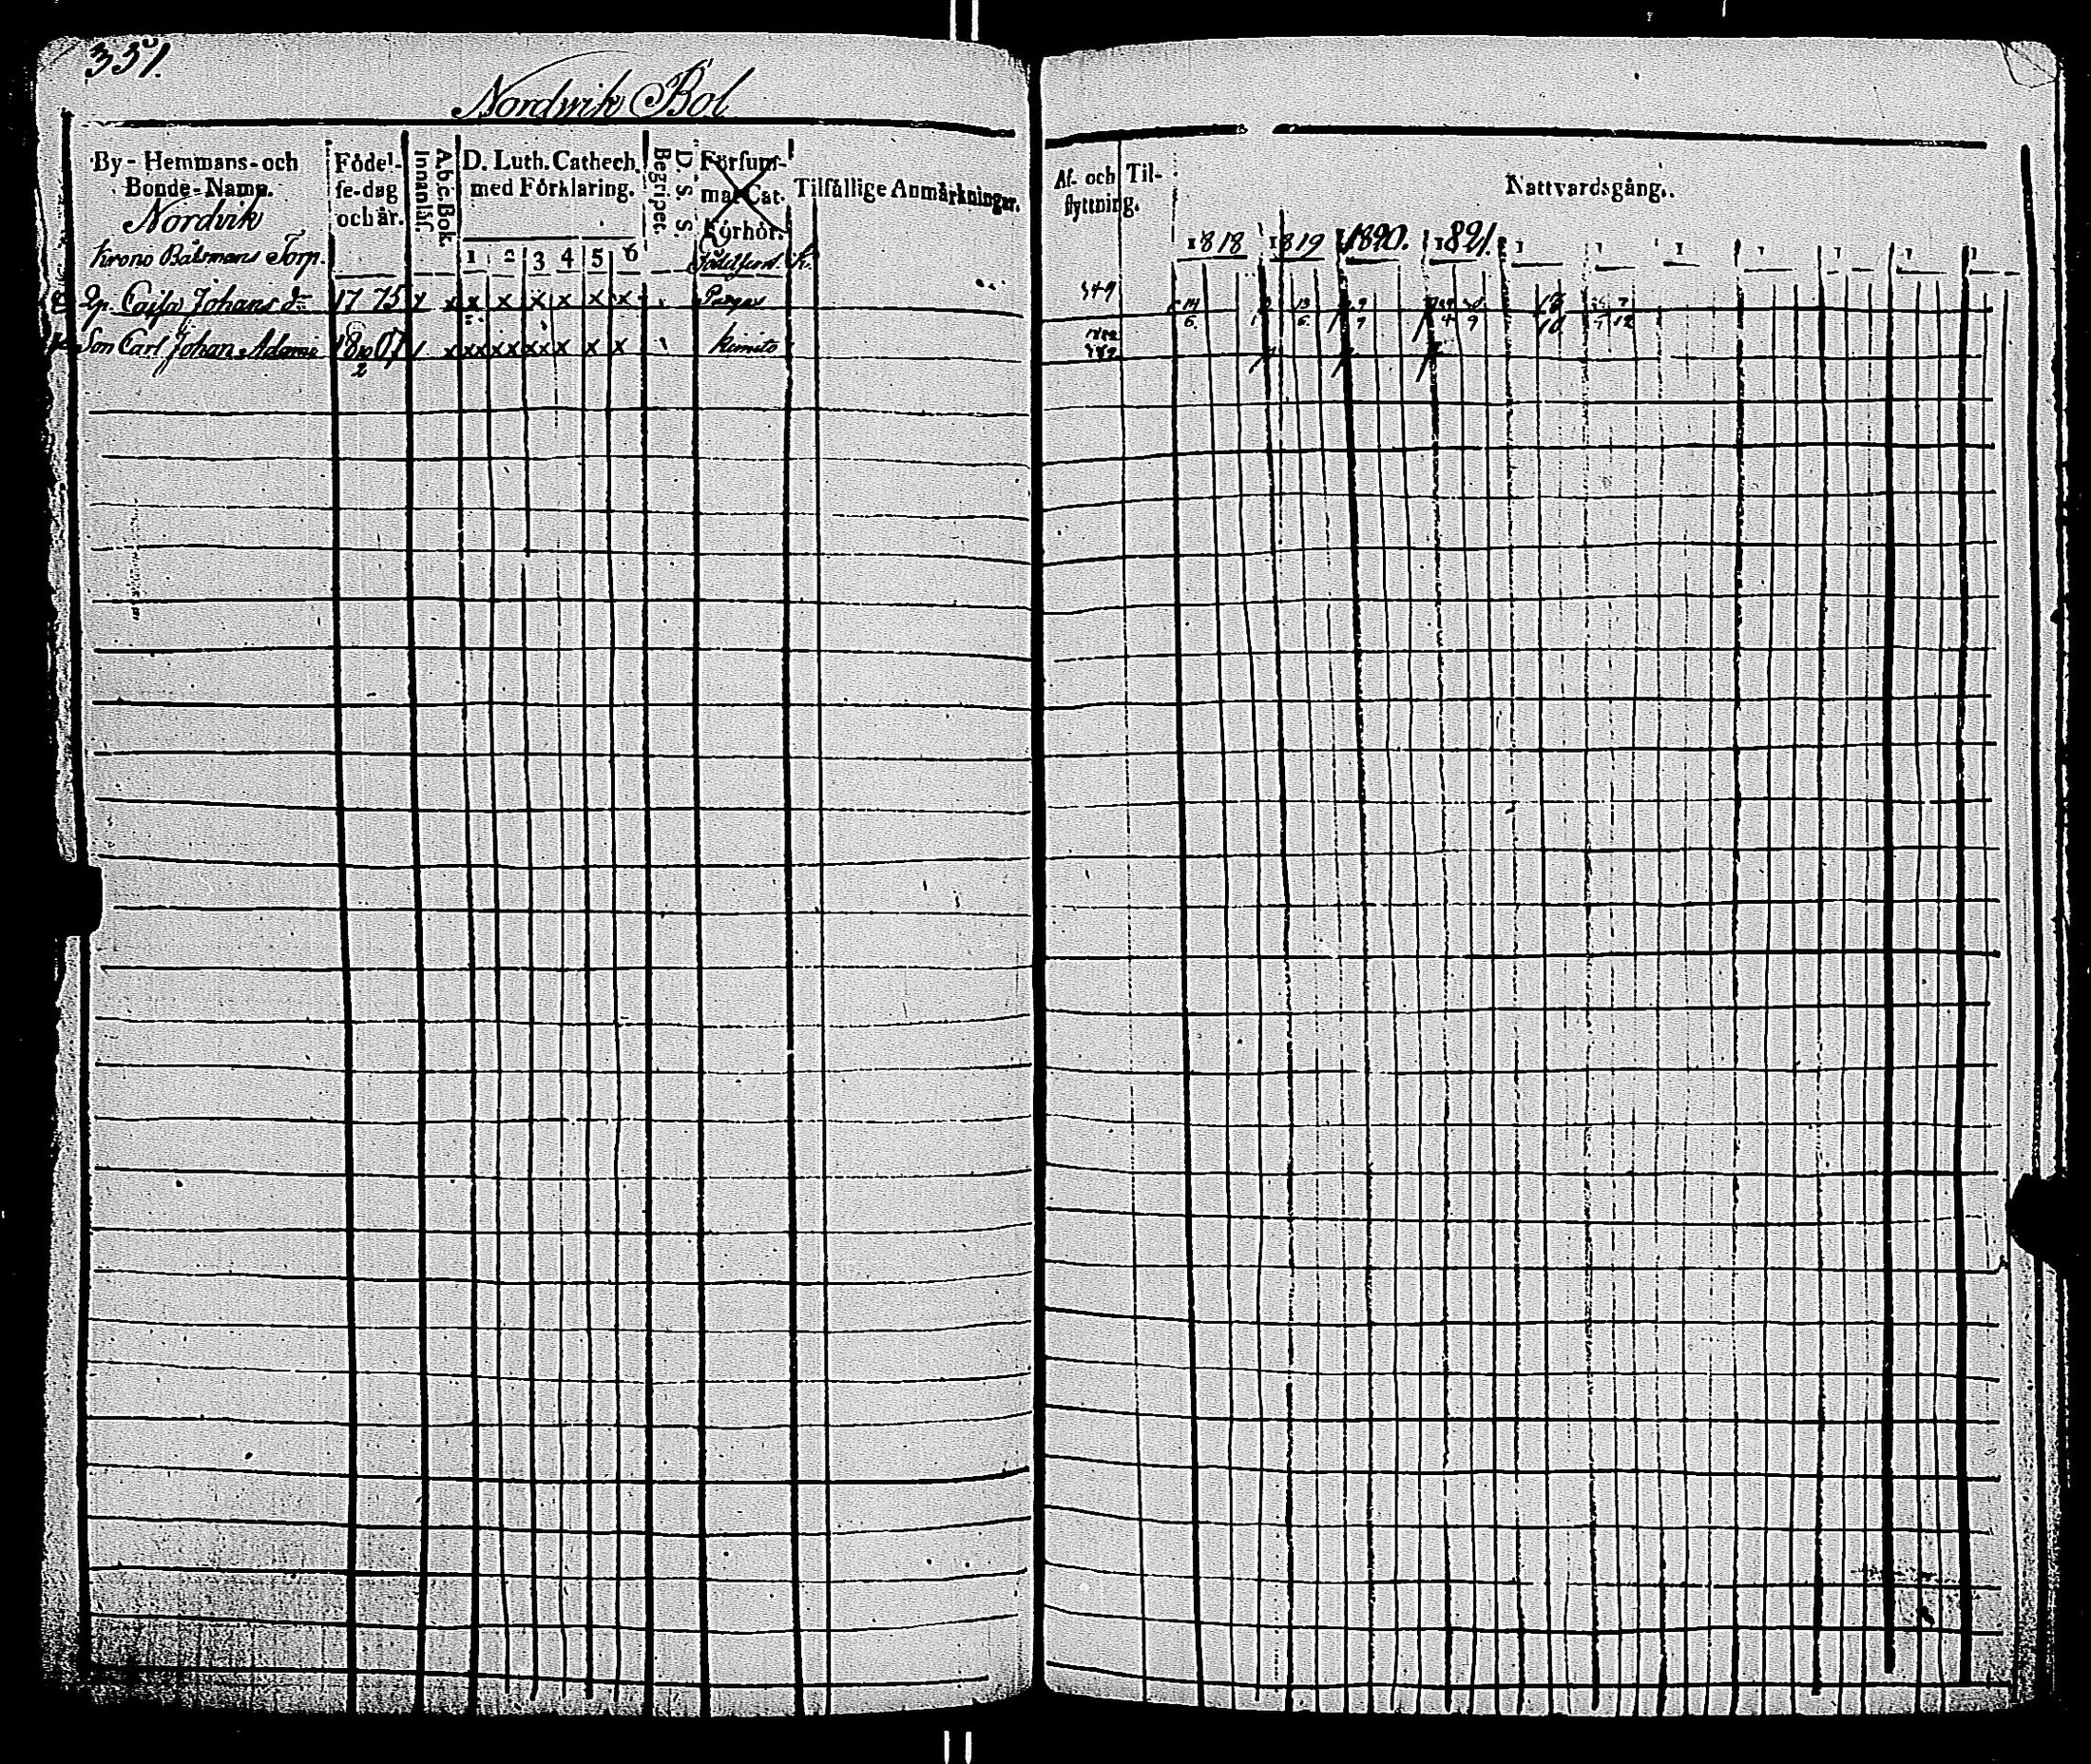 351.
Nordvik Bol
By-Hemmans-och Bonde-Namn.
Födel-se-dag och år.
Abc-Bok. Innanläs.
D. Luth. Cathech. med Förklaring.
D. S. S. Begripet.
Försum-mat Cat. Förhör.
Tilfällige Anmärkningar.
Nordvik
Krono Båtsmans Torp.
1 2 3 4 5 6
Caisa Johans dr 1775 x x x x x x x Pargas
Son Carl Johan Adams 18 10/2 07 x xx xx xx x x x Kimito
Af- och Til-flyttning.
Nattvardsgång.
1818 1819 1820. 1821. 1 1 1 1 1 1 1
349 14/6 13/6 9/9